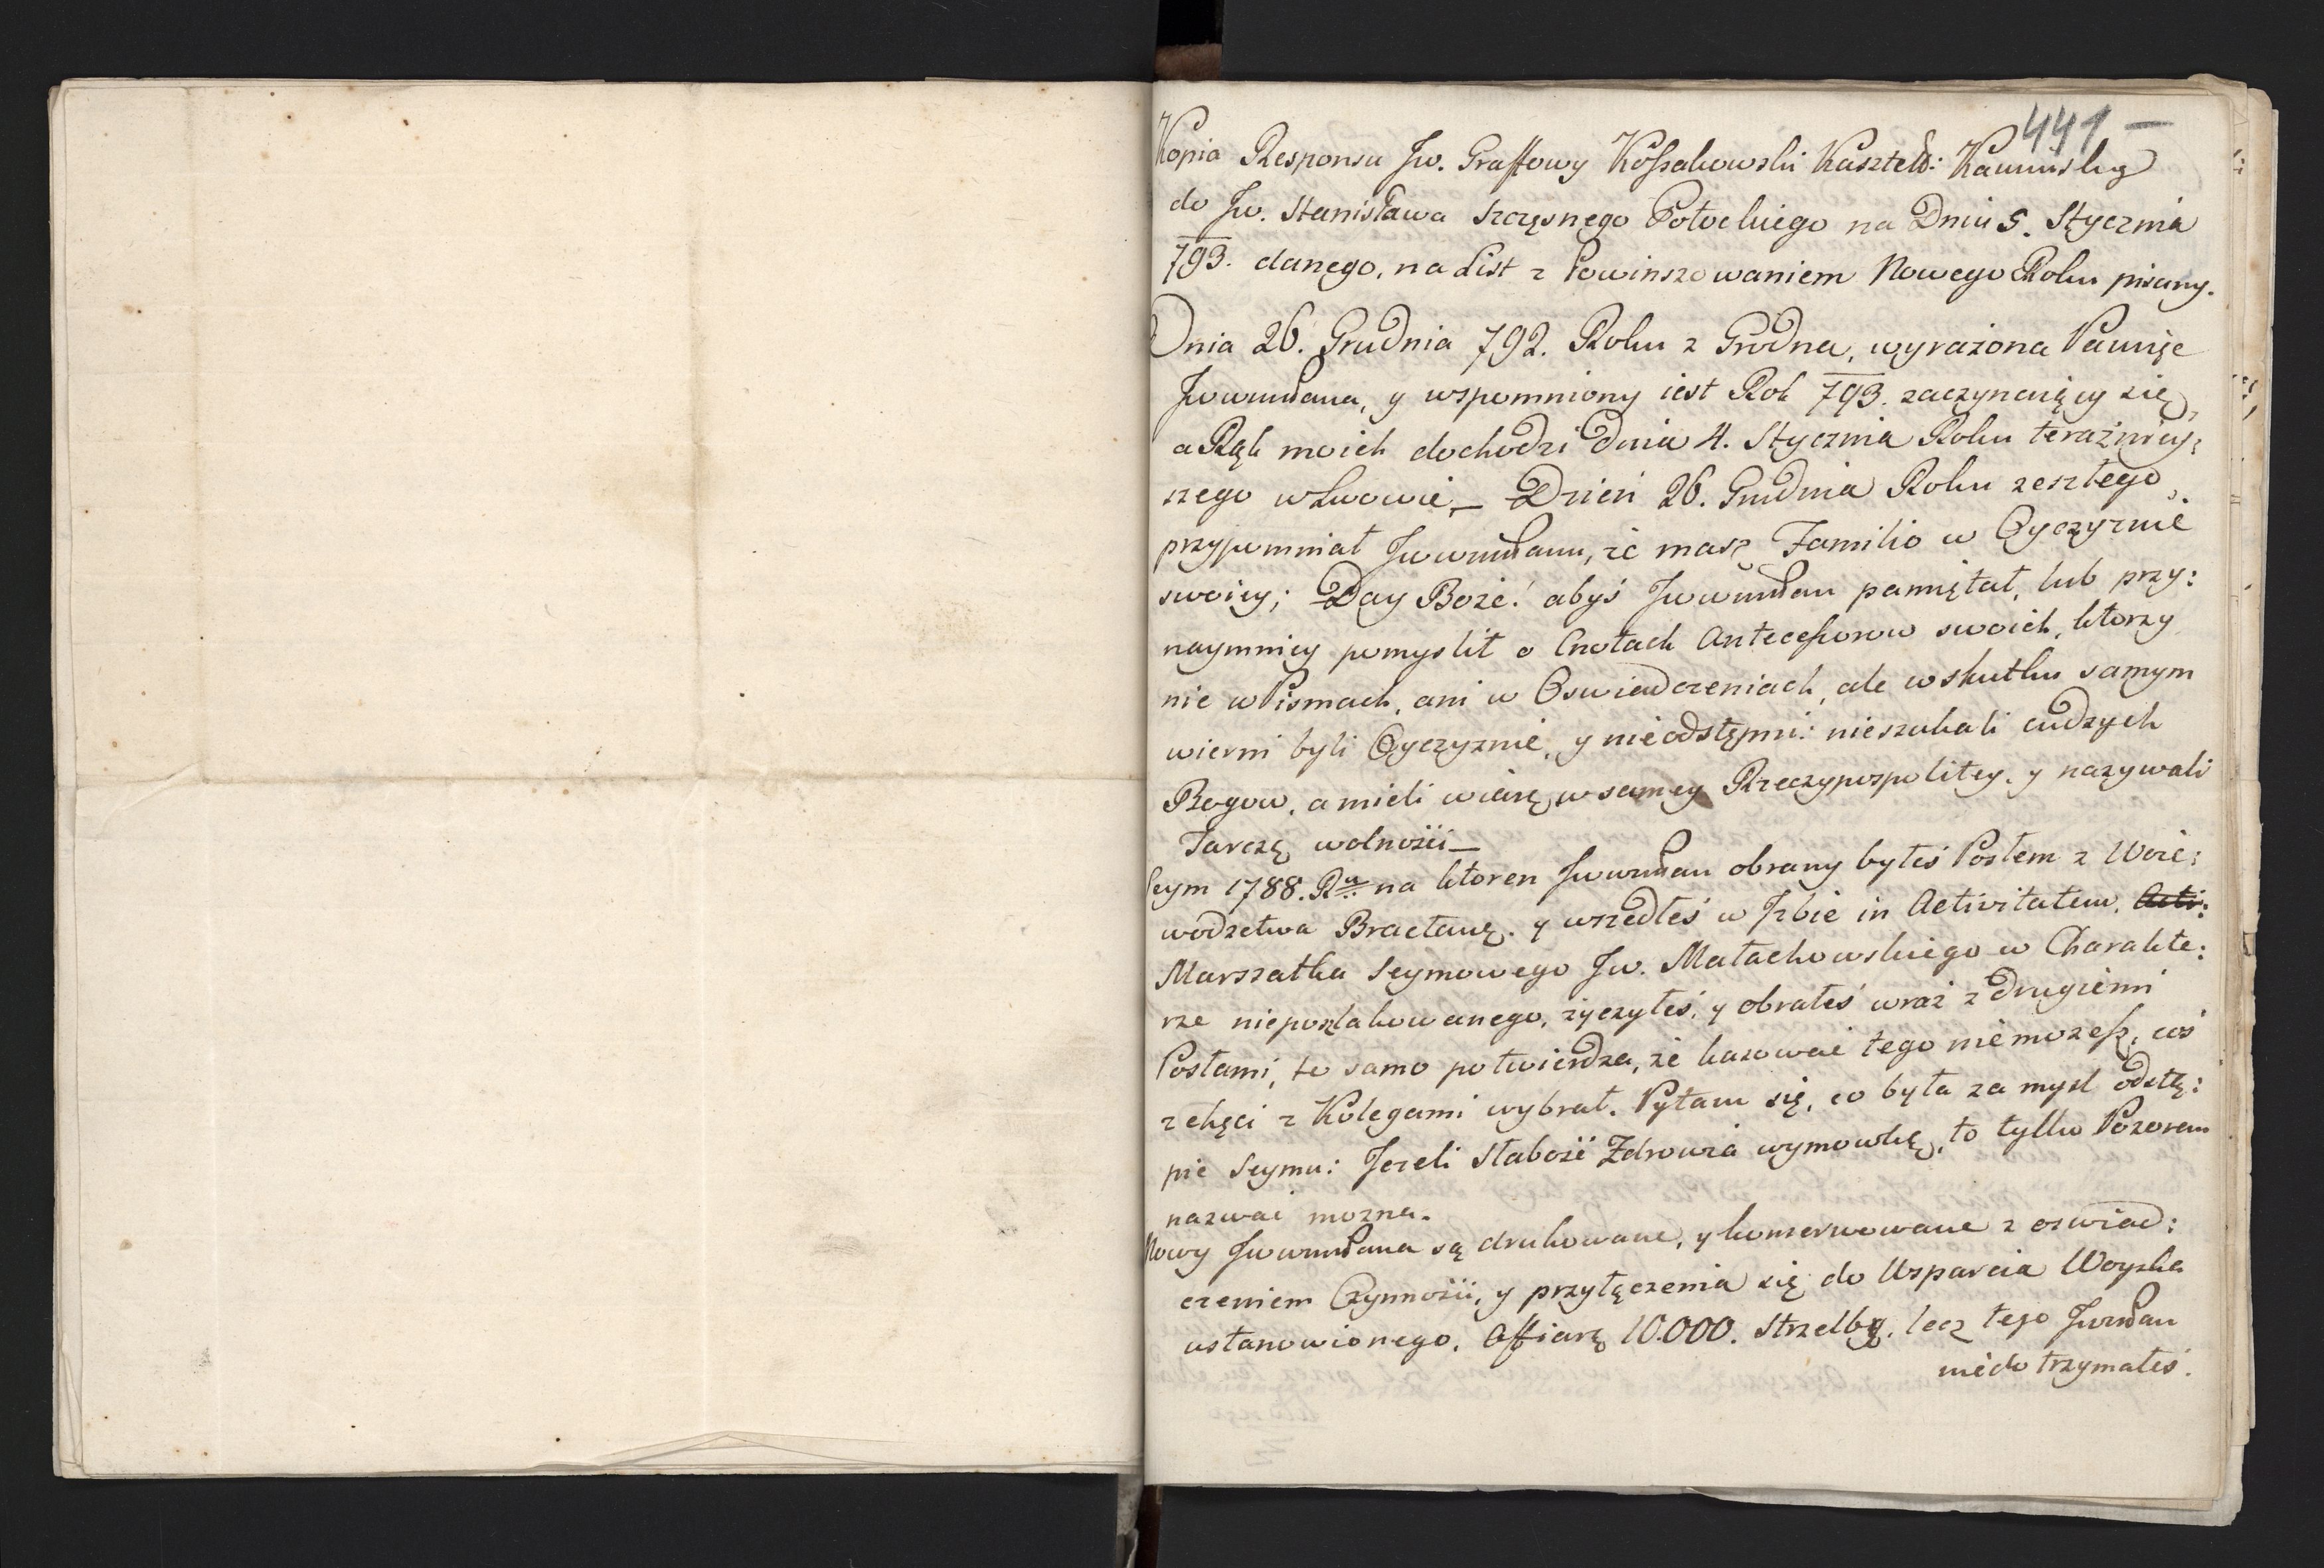 441 –
Kopia Responsu Jw. Graffowy Kossakowski Kasztel: Kaminsky
do Jw. Stanisława Szczęsnego Potockiego na Dniu 5. Stycznia
793. danego, na List z Powinszowaniem Nowego Roku pisany.
Dnia 26. Grudnia 792. Roku z Grodna, wyrażona Pamięc
Jwwmdana, y wspomniony iest Rok 793. zaczynaiący się,
a Rąk moich dochodzi dnia 4. Stycznia Roku teraźniey:
szego w Lwowie – Dzień 26. Grudnia Roku zeszłego,
przypomniał Jwwmdanu, że masz Familio w Oyczyznie
swoiey; Day Boże! abyś Jwwmdan pamiętał, lub przy:
naymniey pomyslił o Cnotach Antecessorow swoich, ktorzy
nie w Pismach, ani w Oswiadczeniach, ale w skutku samym
wierni byli Oyczyznie, y nieodstępni: nieszukali cudzych
Bogow, a mieli wiarę w samey Rzeczypospolitey, y nazywali
Tarczą wolnosci –
Seym 1788. Ru na ktoren Jwwmdan obrany byłeś Posłem z Woie:
wodzctwa Bracław. y wszedłeś w Jzbie in Activitatem,
Marszałka Seymowego Jw. Małachowskiego w Charakte:
rze nieposzlakowanego, życzyłeś, y obrałeś wraz z drugiemi
Posłami, to samo potwierdza, że kazować tego nie możesz, coś
z chęci z Kolegami wybrał. Pytam się, co była za mysl odstą:
pic Seymu: Jezeli słabość Zdrowia wymowką, to tylko Pozorem
nazwać mozna.
Mowy Jwwmdana są drukowane, y konserwowane z oswiad:
czeniem Czynnosci, y przyłączenia się do Wsparcia Woyska
ustanowionego, Offiarę 10.000. Strzelby, lecz tego Jwmdan
niedotrzymałeś.